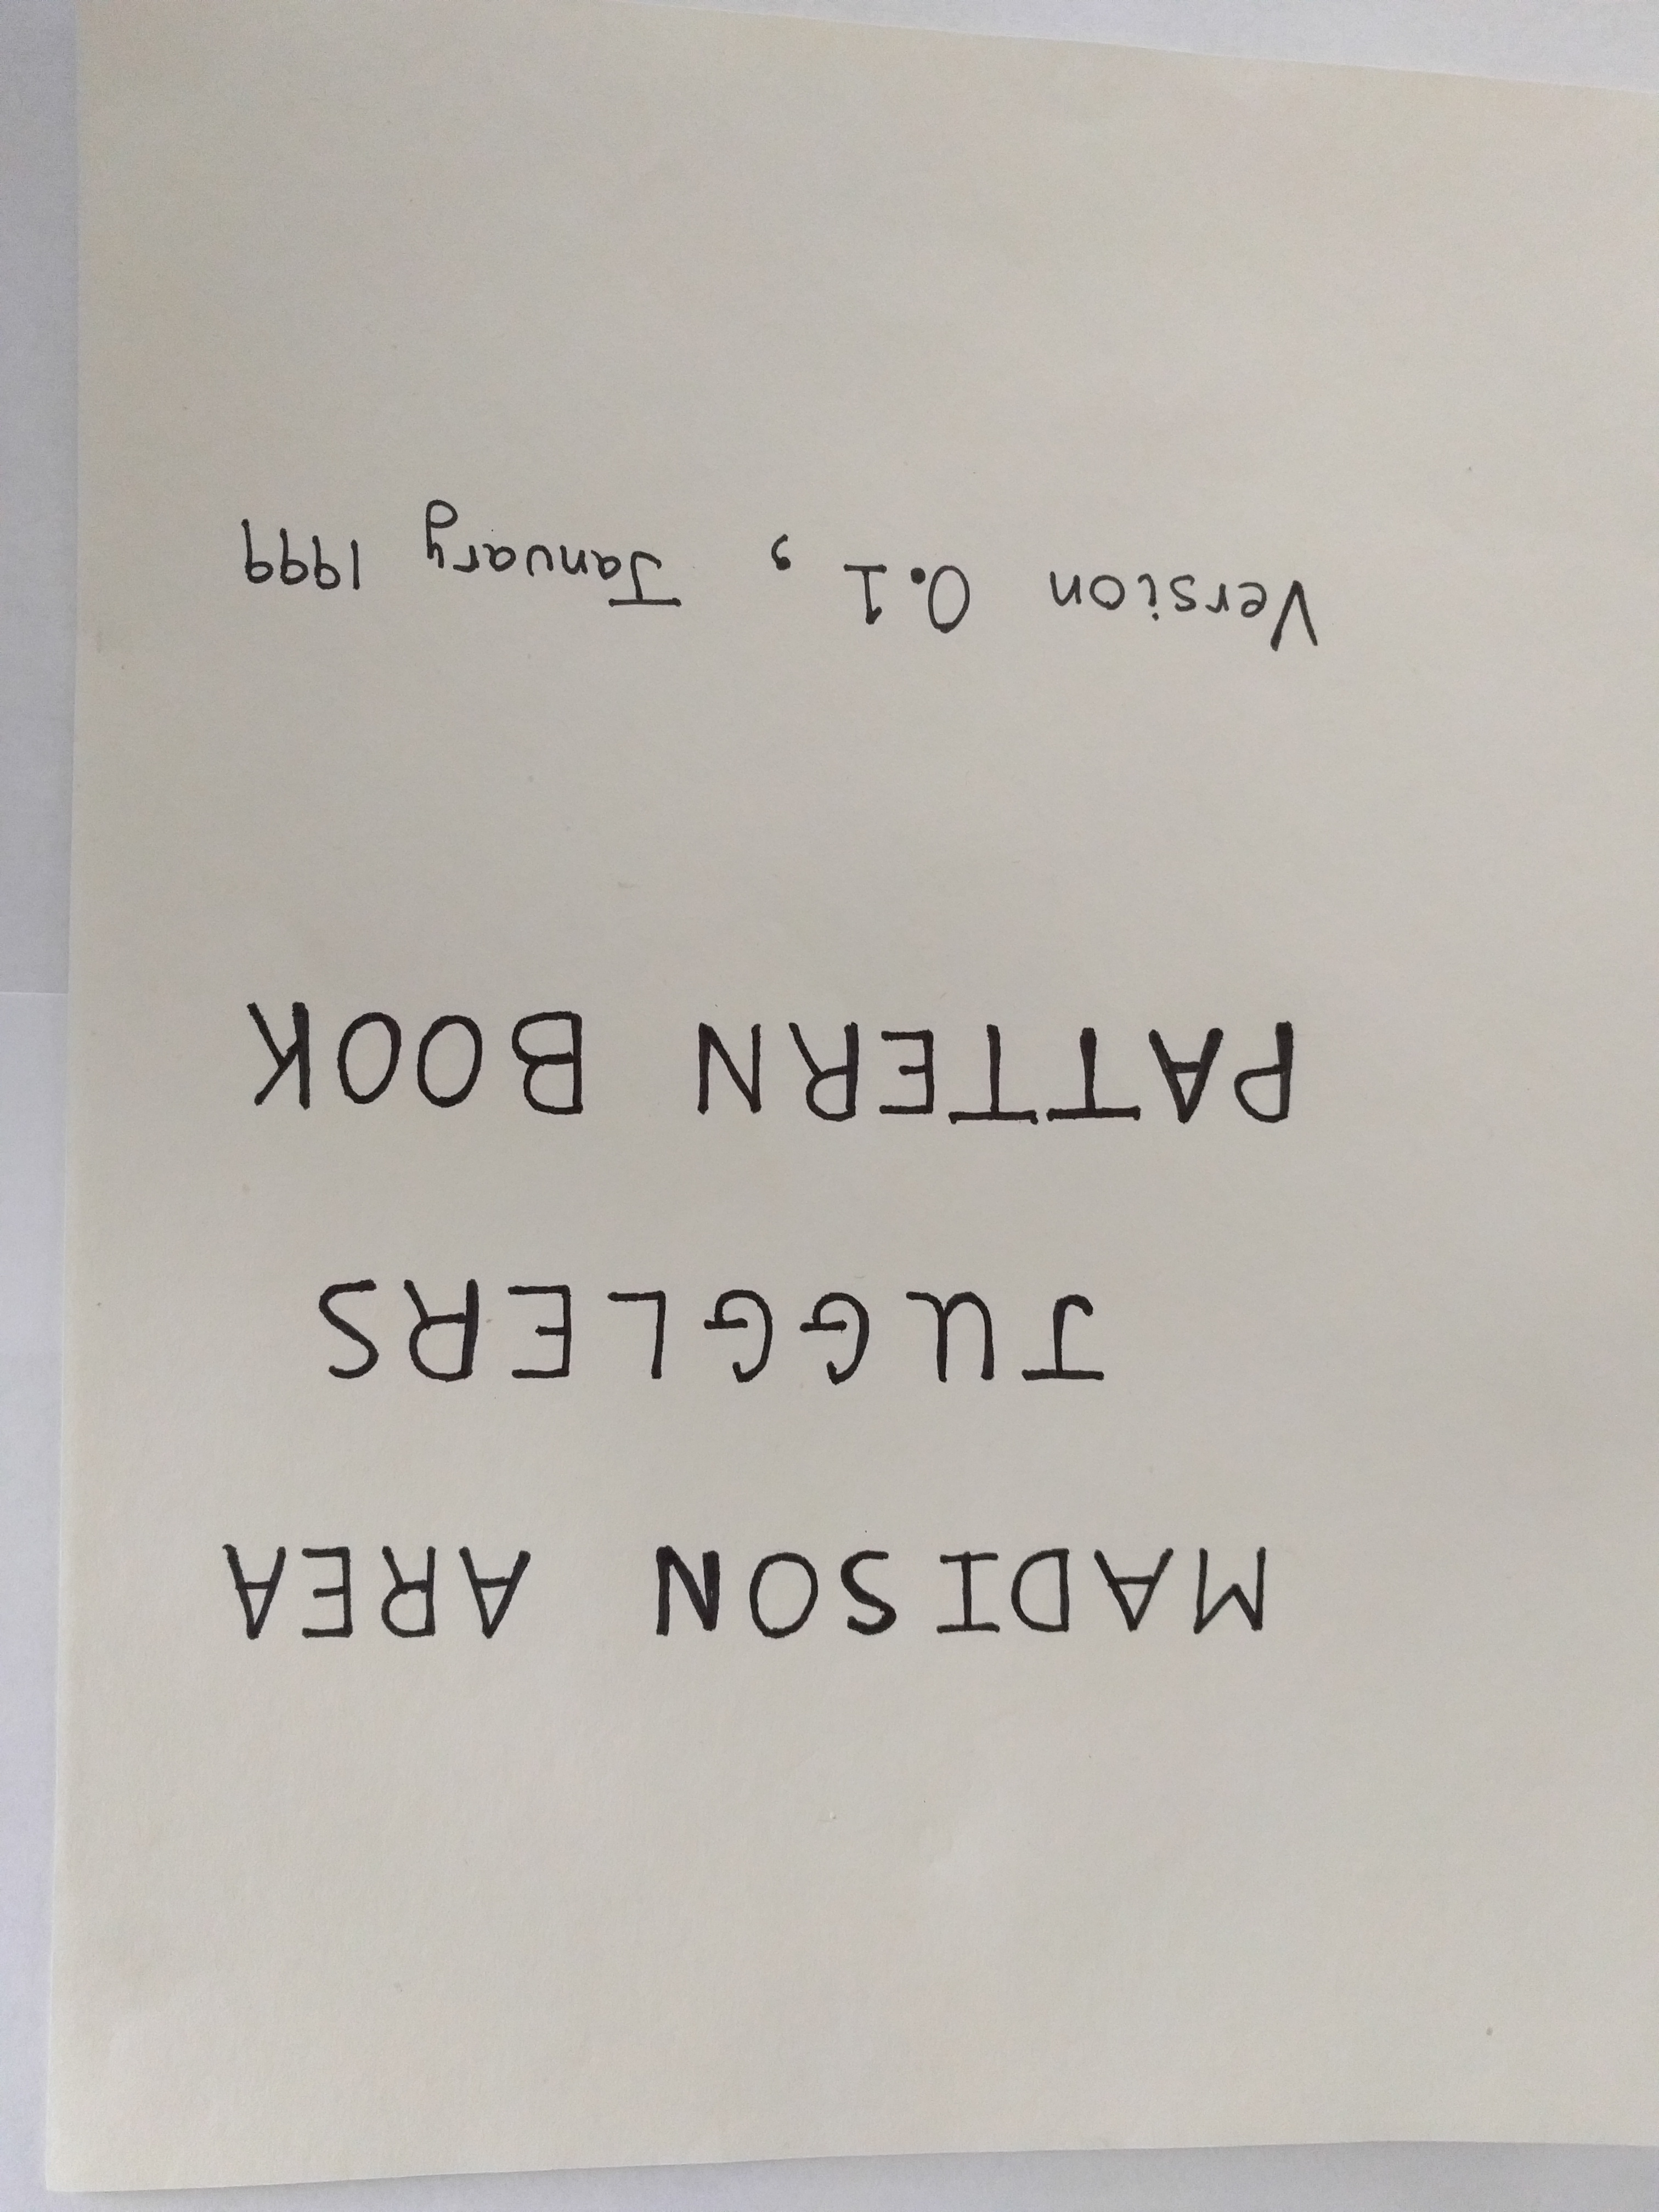 MADISON AREA
JUGGLERS
PATTERN BOOK
Version 0.1, January 1999